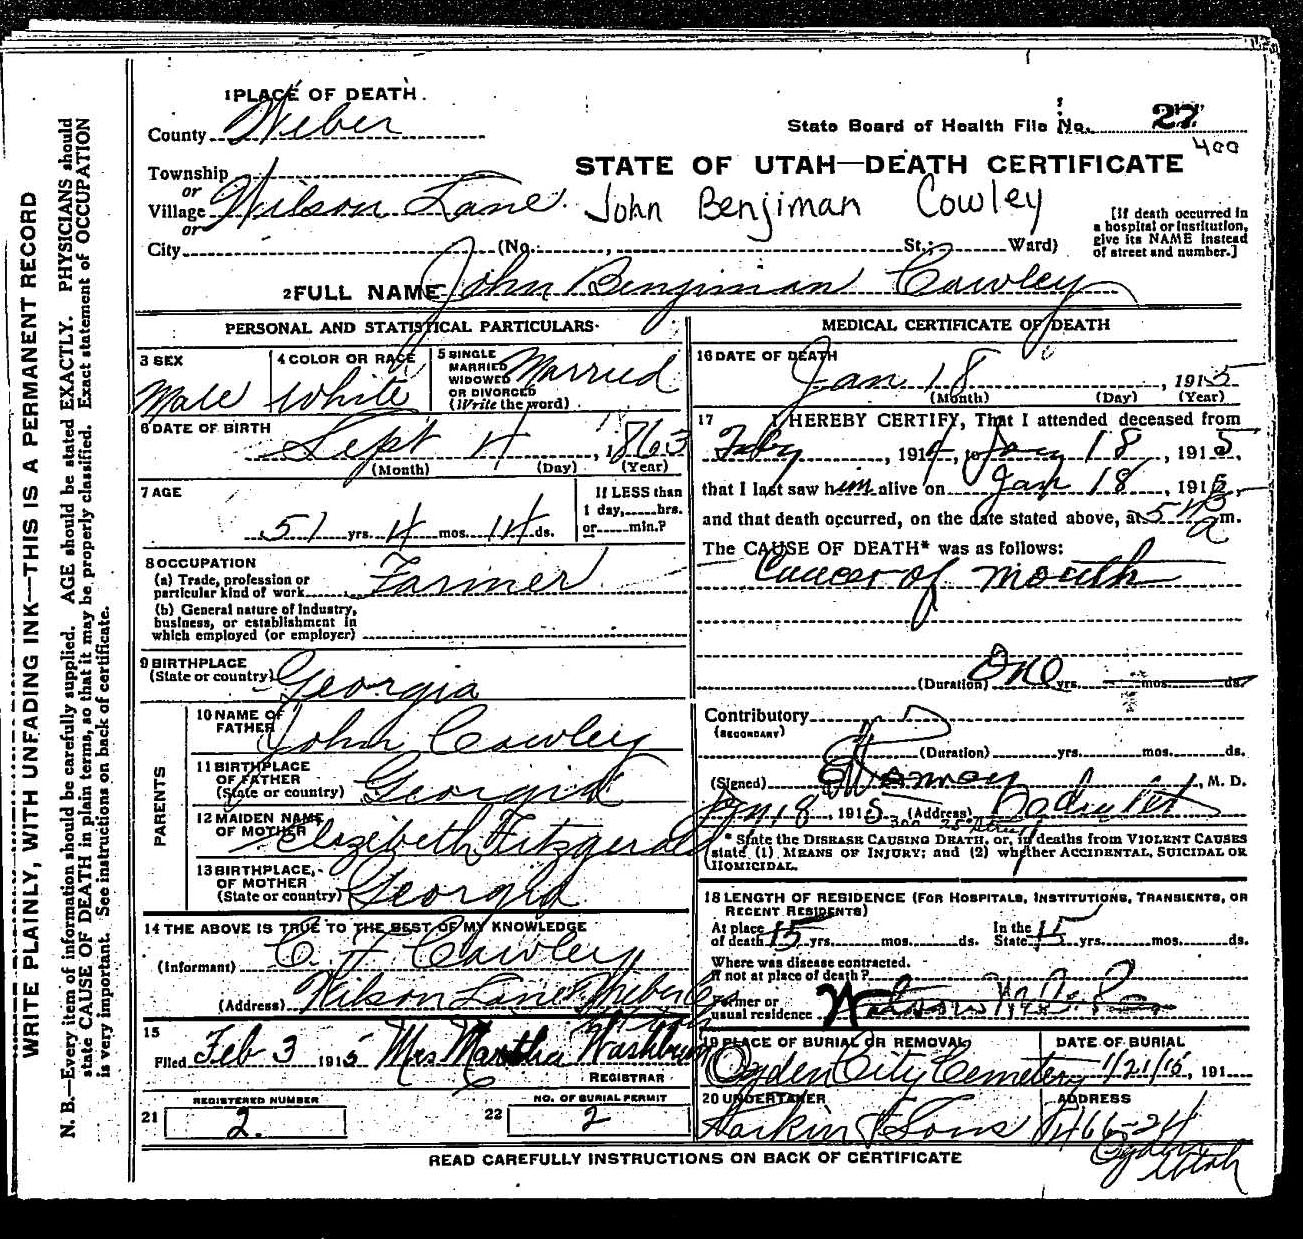 WRITE PLAINLY, WITH UNFADING INK—THIS IS A PERMANENT RECORD
N. B.—Every item of information should be carefully supplied. AGE should be stated EXACTLY. PHYSICIANS should
state CAUSE OF DEATH in plain terms, so that it may be properly classified. Exact statement of OCCUPATION
is very important. See instructions on back of certificate.
1 PLACE OF DEATH.
County Weber
State Board of Health File No. 27
400
STATE OF UTAH—DEATH CERTIFICATE
Township
or
Village Wilson Lane
or
John Benjiman Cowley
City (No. , St.; Ward)
[If death occurred in
a hospital or institution,
give its NAME instead
of street and number.]
2 FULL NAME John Benjiman Cowley
PERSONAL AND STATISTICAL PARTICULARS
3 SEX
Male
4 COLOR OR RACE
White
5 SINGLE
MARRIED
WIDOWED
OR DIVORCED
(Write the word)
Married
6 DATE OF BIRTH
Sept 4, 1863
(Month) (Day) (Year)
7 AGE
51 yrs. 4 mos. 14 ds.
If LESS than
1 day, hrs.
or min.?
8 OCCUPATION
(a) Trade, profession or
particular kind of work Farmer
(b) General nature of Industry,
business, or establishment in
which employed (or employer)
9 BIRTHPLACE
(State or country) Georgia
PARENTS
10 NAME OF
FATHER John Cowley
11 BIRTHPLACE
OF FATHER
(State or country) Georgia
12 MAIDEN NAME
OF MOTHER Elizibeth Fitzgerald
13 BIRTHPLACE,
OF MOTHER
(State or country) Georgia
14 THE ABOVE IS TRUE TO THE BEST OF MY KNOWLEDGE
(Informant) C. F. Cowley
(Address) Wilson Lane Weber Co
15
Filed Feb 3 1915 Mrs Martha Washburn
REGISTRAR
21 REGISTERED NUMBER
2.
22 NO. OF BURIAL PERMIT
2
MEDICAL CERTIFICATE OF DEATH
16 DATE OF DEATH
Jan 18, 1915
(Month) (Day) (Year)
17 I HEREBY CERTIFY, That I attended deceased from
Feby, 1914, to Jan 18, 1915,
that I last saw him alive on Jan 18, 1915,
and that death occurred, on the date stated above, at 5 45 a m.
The CAUSE OF DEATH* was as follows:
Cancer of mouth
(Duration) One yrs. mos. ds.
Contributory
(SECONDARY)
(Duration) yrs. mos. ds.
(Signed) , M. D.
Jan 18, 1915 (Address)
* State the DISEASE CAUSING DEATH, or, in deaths from VIOLENT CAUSES
state (1) MEANS OF INJURY; and (2) whether ACCIDENTAL, SUICIDAL OR
HOMICIDAL.
18 LENGTH OF RESIDENCE (FOR HOSPITALS, INSTITUTIONS, TRANSIENTS, OR
RECENT RESIDENTS)
At place
of death 15 yrs. mos. ds.
In the
State 15 yrs. mos. ds.
Where was disease contracted.
If not at place of death?
Former or
usual residence
19 PLACE OF BURIAL OR REMOVAL
Ogden City Cemetery
DATE OF BURIAL
1/21/15, 191
20 UNDERTAKER
Larkin & Sons
ADDRESS
466-24
Ogden
Utah
READ CAREFULLY INSTRUCTIONS ON BACK OF CERTIFICATE